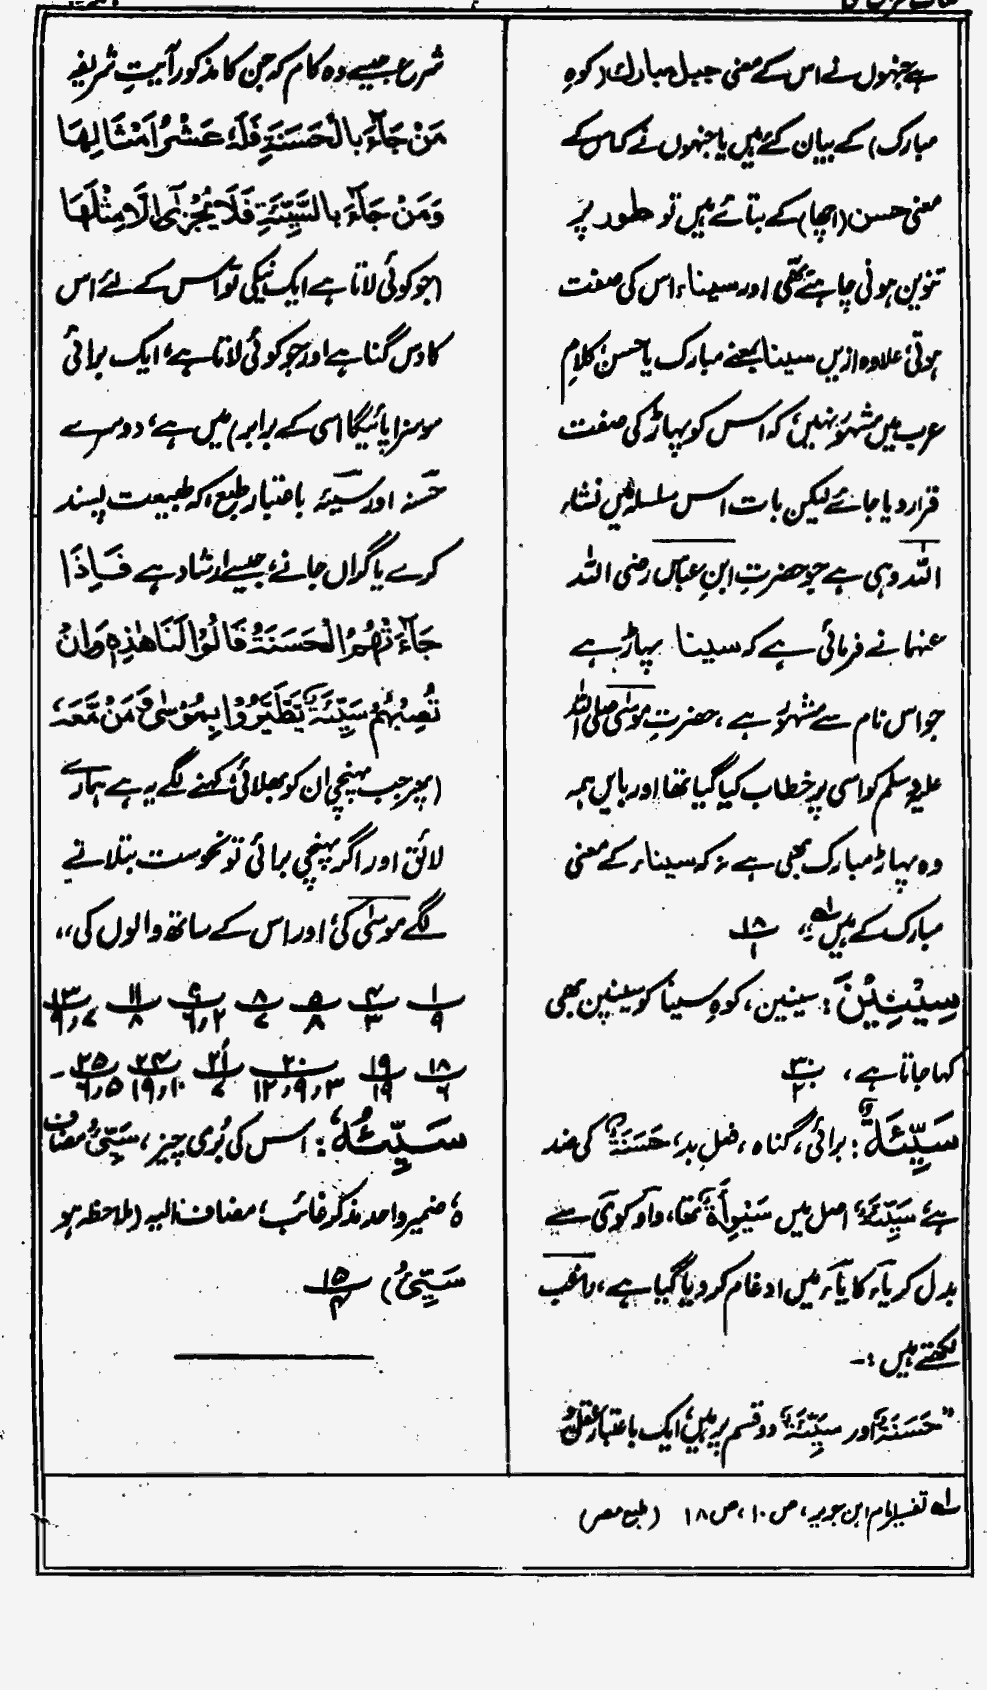 ہے جنہوں نے اس کے معنی جبل مبارک (کوہِ
مبارک) کے بیان کئے ہیں یا جنہوں نے کہ اس کے
معنی حسن (اچھا) کے بتائے ہیں تو طور پر
تنوین ہونی چاہئے تھی اور سیناء اس کی صفت
ہوتی، علاوہ ازیں سینا بمعنے مبارک یا حسن کلامِ
عرب میں مشہور نہیں، کہ اس کو پہاڑ کی صفت
قرار دیا جائے لیکن بات اس سلسلہ میں انشاء
اللہ وہی ہے جو حضرتِ ابنِ عباس رضی اللہ
عنہما نے فرمائی ہے کہ سینا پہاڑ ہے
جو اس نام سے مشہور ہے، حضرتِ موسٰی صلی اللہ
علیہ وسلم کو اسی پر خطاب کیا گیا تھا اور بایں ہمہ
وہ پہاڑ مبارک بھی ہے نہ کہ سیناء کے معنی
مبارک کے ہیں ؎۱،، ۱۸/۱
سِيْنِيْنَ: سینین، کوہِ سینا کو سینین بھی
کہا جاتا ہے، ۳۰/۲۰
سَيِّئَةٌ: برائی، گناہ، فعلِ بد، حَسَنَةٌ کی ضد
ہے، سَيِّئَةٌ، اصل میں سَيْوِأَةٌ تھا، واو کو یَ سے
بدل کر یآء کا یآء میں ادغام کر دیا گیا ہے، راغب
لکھتے ہیں:۔
"حَسَنَةٌ اور سَيِّئَةٌ دو قسم پر ہیں، ایک باعتبارِ عقل و
شرع جیسے وہ کام کہ جن کا مذکور آیتِ شریفہ
مَنْ جَآءَ بِالْحَسَنَةِ فَلَهٗ عَشْرُ اَمْثَالِهَا
وَمَنْ جَآءَ بِالسَّيِّئَةِ فَلَا يُجْزٰٓى اِلَّا مِثْلَهَا
(جو کوئی لاتا ہے ایک نیکی تو اس کے لئے اس
کا دس گنا ہے اور جو کوئی لاتا ہے، ایک برائی
سو سزا پائیگا اسی کے برابر) میں ہے، دوسرے
حَسنہ اور سیئہ باعتبار طبع، کہ طبیعت پسند
کرے یا گراں جانے، جیسے ارشاد ہے فَاِذَا
جَآءَتْهُمُ الْحَسَنَةُ قَالُوْا لَنَا هٰذِهٖ وَاِنْ
تُصِبْهُمْ سَيِّئَةٌ يَّطَّيَّرُوْا بِمُوْسٰى وَمَنْ مَّعَهٗ
(پھر جب پہنچی ان کو بھلائی، کہنے لگے یہ ہے ہمارے
لائق اور اگر پہنچی برائی تو نحوست بتلانے
لگے موسٰی کی، اور اس کے ساتھ والوں کی،،
۱/۹ ۴/۳ ۵/۸ ۸/۷ ۹/۲،۶ ۱۱/۸ ۱۳/۷،۹
۱۸/۶ ۱۹/۱۹ ۲۰/۳،۹،۱۲ ۲۱/۷ ۲۴/۱۰،۱۹ ۲۵/۵،۶ ۔
سَيِّئُهٗ: اس کی بُری چیز، سَيِّئُ مضاف
ہٗ، ضمیر واحد مذکر غائب، مضاف الیہ (ملاحظہ ہو
سَيِّئُ) ۱۵/۴
؎۱ تفسیر امام ابن جریر، ص ۱۰، ص ۱۸ (طبع مصر)